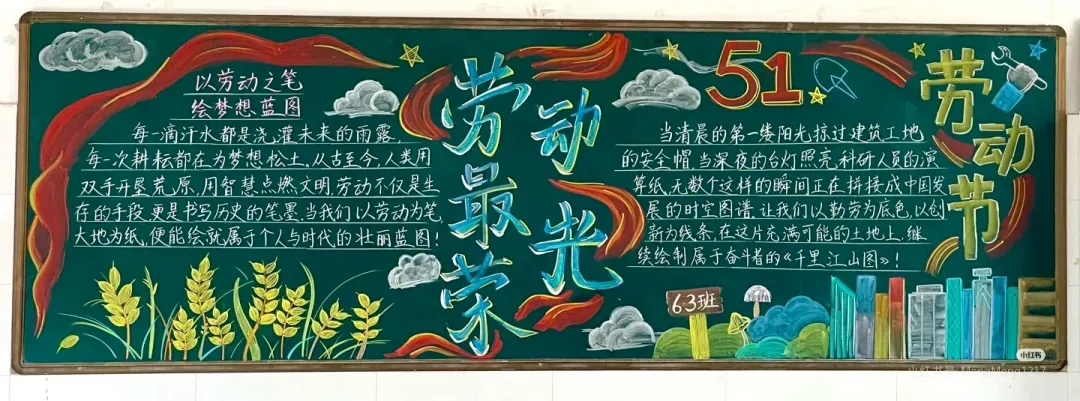 以劳动之笔
绘梦想蓝图
每一滴汗水都是浇灌未来的雨露,
每一次耕耘都在为梦想松土,从古至今,人类用
双手开垦荒原,用智慧点燃文明,劳动不仅是生
存的手段,更是书写历史的笔墨,当我们以劳动为笔,
大地为纸,便能绘就属于个人与时代的壮丽蓝图!
劳动
最光
荣
51
当清晨的第一缕阳光掠过建筑工地
的安全帽,当深夜的台灯照亮科研人员的演
算纸,无数个这样的瞬间正在拼接成中国发
展的时空图谱,让我们以勤劳为底色,以创
新为线条,在这片充满可能的土地上,继
续绘制属于奋斗者的《千里江山图》!
劳动节
63班
小红书
小红书号:MengMeng1217